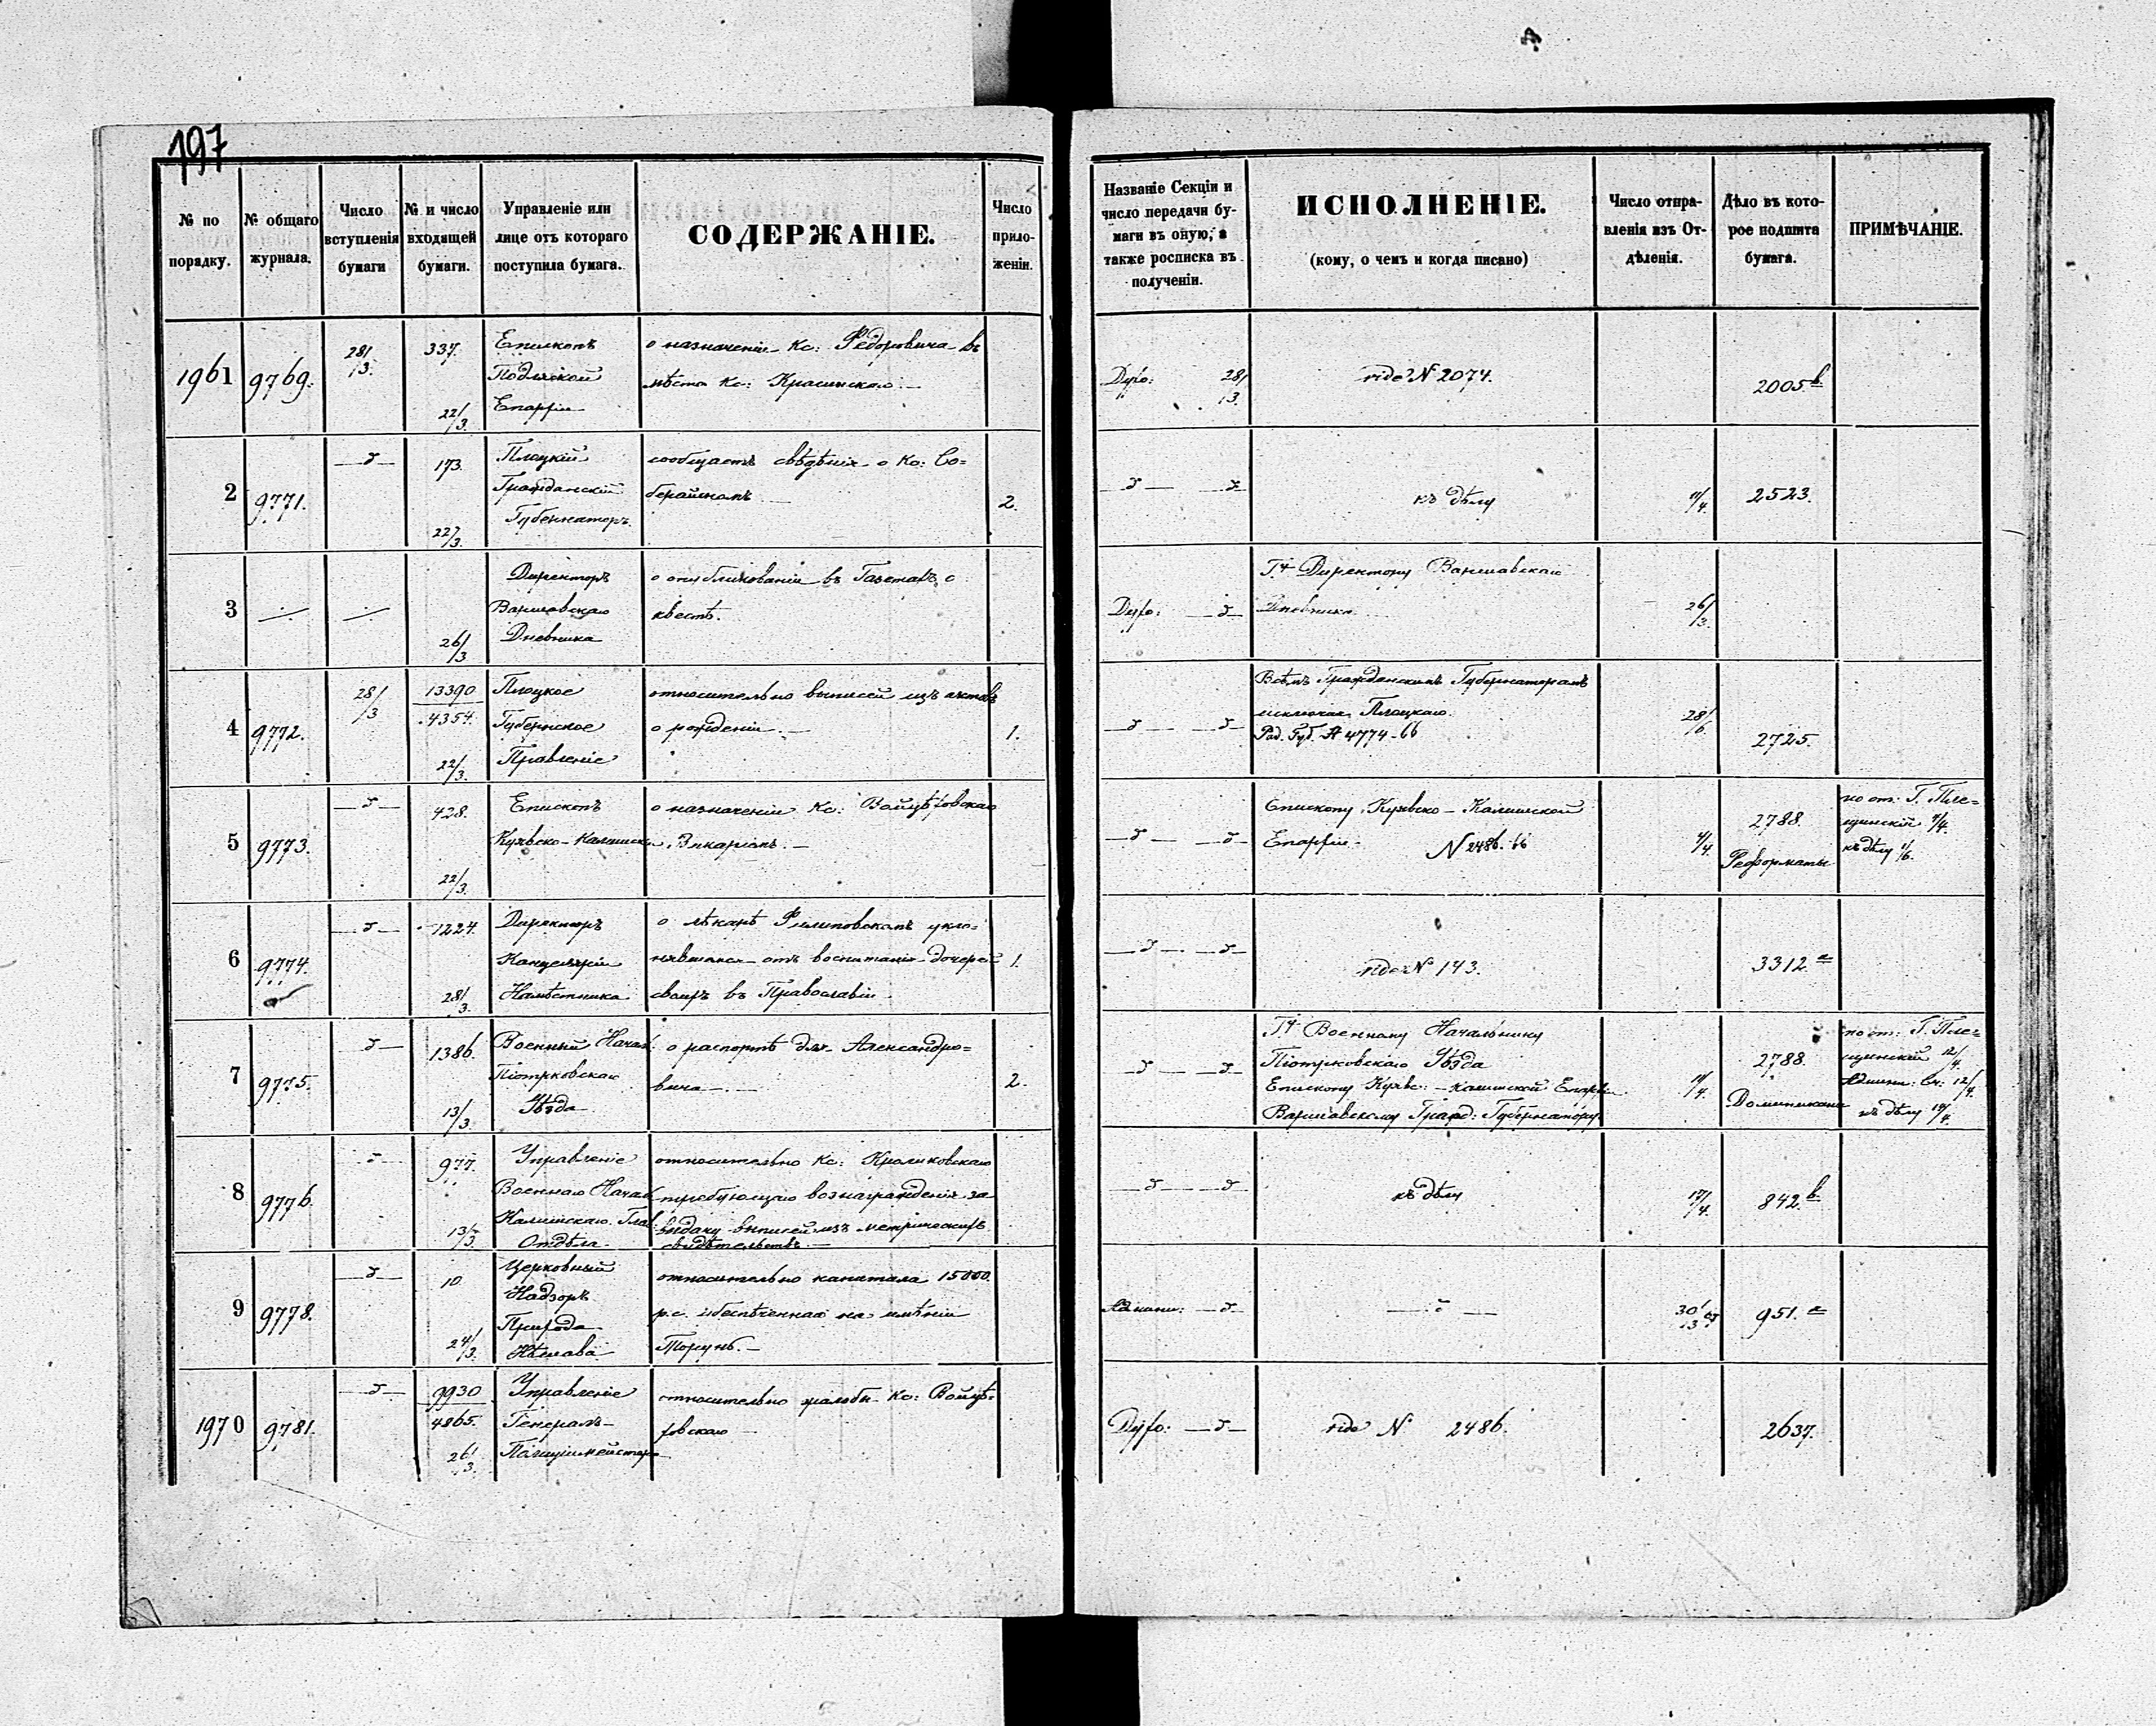 197
№ по порядку.
№ общаго журнала.
Число вступленія бумаги
№ и число входящей бумаги.
Управленіе или лице отъ котораго поступила бумага.
СОДЕРЖАНІЕ.
Число приложеніи.
Названіе Секціи и число передачи бумаги въ оную, а также росписка въ полученіи.
ИСПОЛНЕНІЕ.
(кому, о чемъ и когда писано)
Число отправленія изъ Отдѣленія.
Дѣло въ которое подшита бумага.
ПРИМѢЧАНІЕ.
1961 9769. 28/3. 337. 22/3.
Епископъ
Подляской
Епархіи
о назначеніи Кс: Федоровича въ
мѣсто Кс: Красинскаго.—
28/3. vide N 2074. 2005 b
2 9771. 173. 22/3.
Плоцкій
Гражданскій
Губернаторъ
сообщаетъ свѣдѣнія о Кс: Со=
берайскомъ —
2.
къ дѣлу 11/4. 2523.
3 26/3
Директоръ
Варшавскаго
Дневника
о опубликованіи въ Газетахъ о
квестѣ.
Гну Директору Варшавскаго
Дневника
26/3.
4 9772. 28/3 13390 4354. 22/3.
Плоцкое
Губернское
Правленіе
относительно выписей изъ актовъ
о рожденіи.—
1.
Всѣмъ Гражданскимъ Губернаторамъ
исключая Плоцкаго.
Рад. Губ. № 4774-66
28/6. 2725.
5 9773. 428. 22/3.
Епископъ
Куявско-Калишской
о назначеніи Кс:
Викаріемъ.—
Епископу Куявско-Калишской
Епархіи N 2486.66
4/4. 2788.
Реформаты
по от: Г. Пле=
щинскій 4/4.
къ дѣлу
6 9774. 1224. 28/3.
Директоръ
Канцеляріи
Намѣстника
о лѣкарѣ Филиповскомъ укло=
нявшемся отъ воспитанія дочерей
своихъ въ Православіи.
1.
vide N 143. 3312. a
7 9775. 1386. 13/3.
Военный Начал:
Піотрковскаго
Уѣзда
о паспортѣ для Александро=
вича —.—
2.
Гну Военному Начальнику
Піотрковскаго Уѣзда
Епископу Куявс:-Калишской Епархіи.
Варшавскому Гражд: Губернатору.
11/4. 2788.
Доминикане
по от: Г. Пле=
щинскій 12/4.
къ дѣлу
8 9776. 977. 13/3.
Управленіе
Военнаго Начал.
Калишскаго
Отдѣла.
относительно Кс: Кроликовскаго
требующаго вознагражденія за
выдачу выписей изъ метрическихъ
свидѣтельствъ.—
къ дѣлу 17/4. 842. b
9 9778. 10 24/3.
Церковный
Надзоръ
Прихода
относительно капитала 15000
р.с. обеспѣченнаго на имѣніи
Торунь.—
30/3 951. a
1970 9781. 9930 4865. 26/3.
Управленіе
Генералъ-
Полиціймейстера
относительно жалобы Кс:
vide N 2486. 2637.